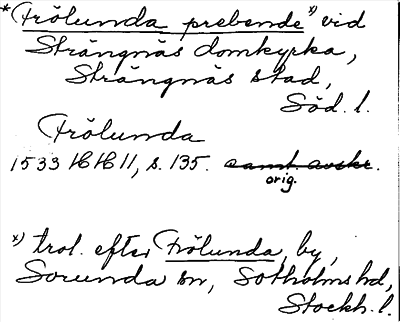 *Frölunda prebende*) vid
Strängnäs domkyrka,
Strängnäs stad,
Söd. l.
Frölunda
1533 HH 11, s. 135. samt. avskr.
orig.
*) trol. efter Frölunda, by,
Sorunda sn, Sotholms hd,
Stockh. l.